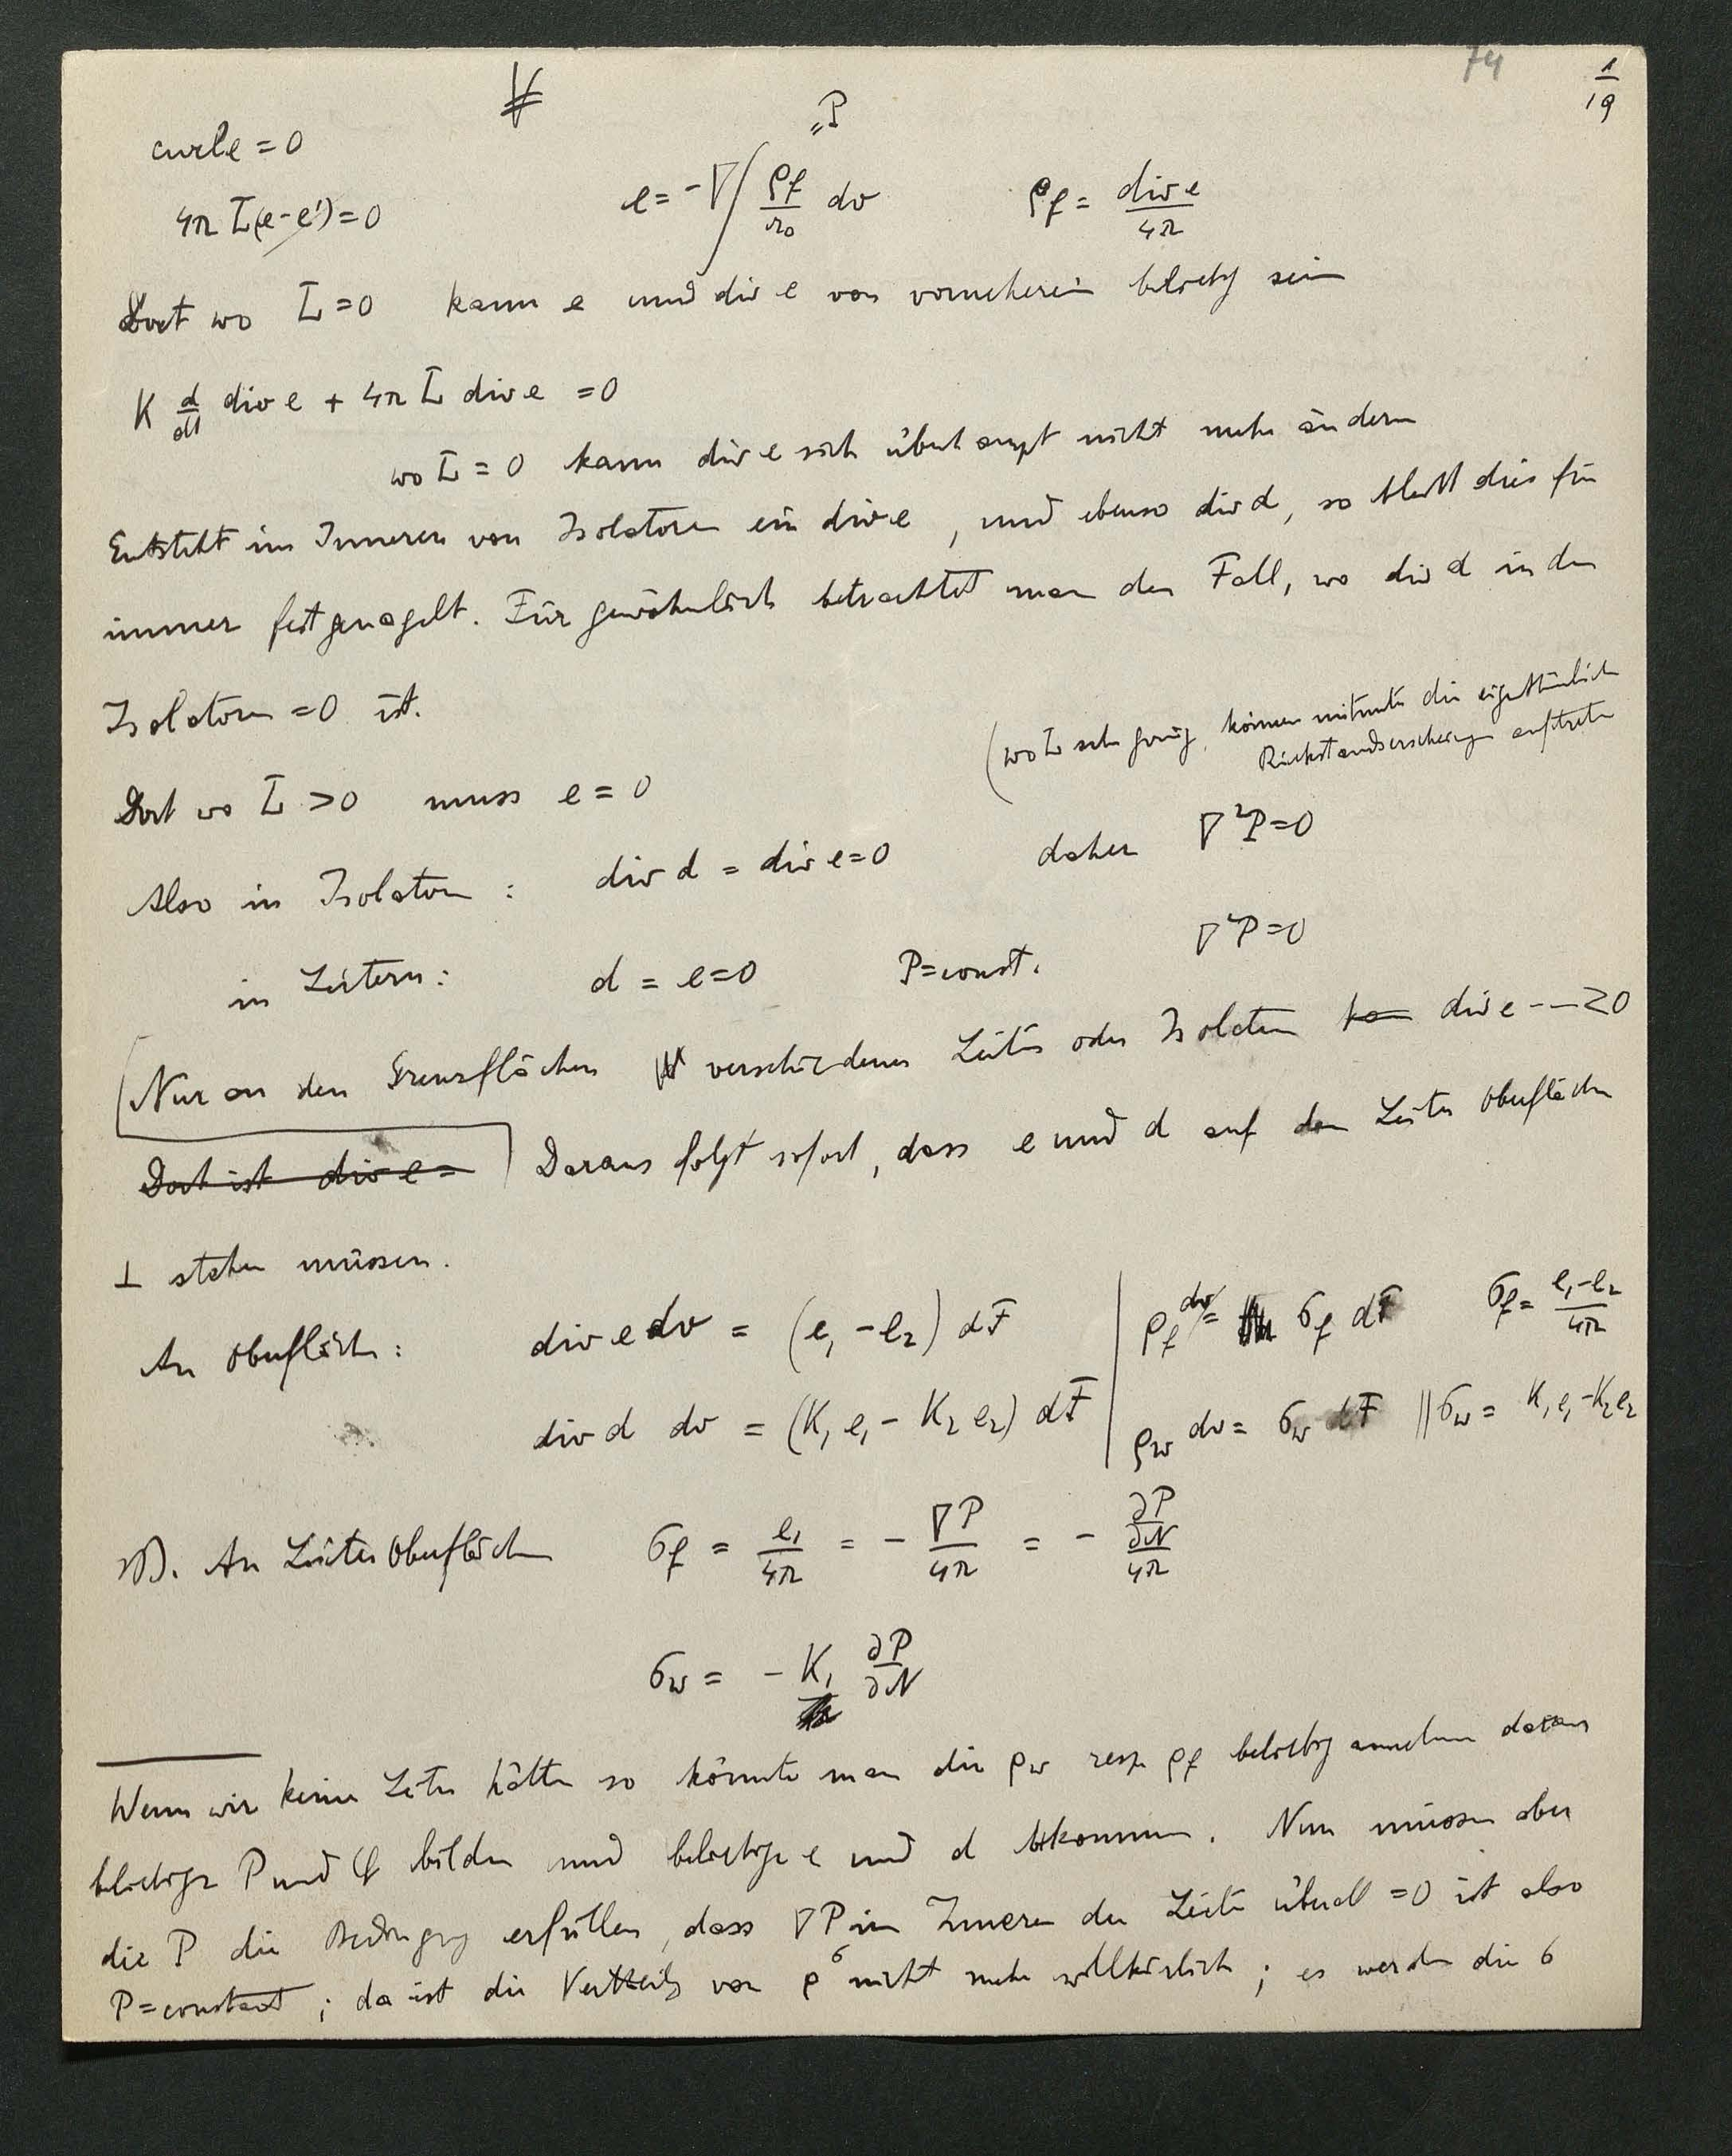 74
1/19
V
„P
curl e = 0
4π L(e-e') = 0   e = -∇∫ ρf/r0 dv   ρf = div e/4π
Dort wo L = 0 kann e und div e von vorneherein beliebig sein
K d/dt div e + 4π L div e = 0
wo L = 0 kann div e sich überhaupt nicht mehr ändern
Entsteht im Inneren von Isolatoren ein div e, und ebenso div d, so bleibt dies für
immer festgenagelt. Für gewöhnlich betrachtet man den Fall, wo div d in den
Isolatoren = 0 ist.
(wo L sehr gering, können mitunter die eigentümlichen
Rückstandserscheinungen auftreten
Dort wo L > 0 muss e = 0
Also in Isolatoren : div d = div e = 0 daher ∇²P = 0
in Leitern : d = e = 0 P = const. ∇²P = 0
Nur an den Grenzflächen verschiedener Leiter oder Isolatoren div e -- ≷ 0
Dort ist div e = Daraus folgt sofort, dass e und d auf den Leiter Oberflächen
⊥ stehen müssen.
An Oberfläche : div e dv = (e1 - e2) dF | ρf dv = σf dF σf = e1-e2/4π
div d dv = (K1 e1 - K2 e2) dF | ρw dv = σw dF || σw = K1 e1 - K2 e2
An Leiter Oberflächen σf = e1/4π = - ∇P/4π = - ∂P/∂N/4π
σw = - K1 ∂P/∂N
Wenn wir keine Leiter hätten so könnte man die ρw resp ρf beliebig annehmen daraus
beliebige P und φ bilden und beliebige e und d bekommen. Nun müssen aber
die P die Bedingung erfüllen, dass ∇P im Inneren der Leiter überall = 0 ist also
P = constant ; da ist die Vertheilg von ρ σ nicht mehr willkürlich ; es werden die σ